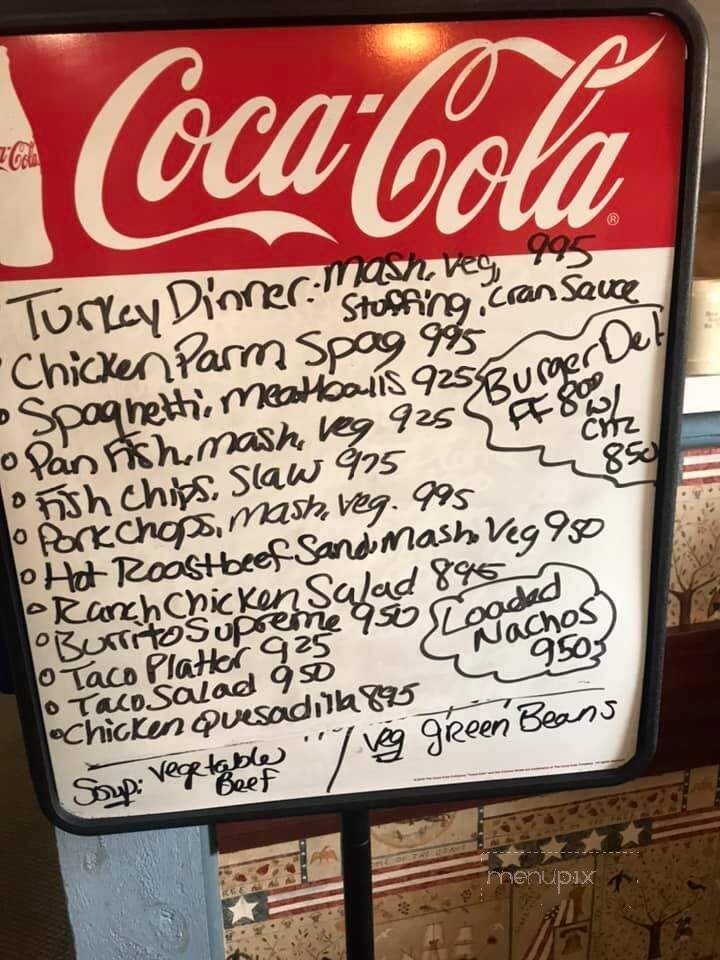 Coca-Cola
®
Turkey Dinner: mash, veg, 995
Stuffing, Cran Sauce
Chicken Parm Spag 995
Spaghetti, meatballs 925
Pan Fish, mash, veg 925
Fish Chips, Slaw 975
Pork Chops, mash, veg. 995
Hot Roastbeef Sand. Mash. Veg 950
Ranch Chicken Salad 895
Burrito Supreme 950
Taco Platter 925
Taco Salad 950
Chicken Quesadilla 895
Burger Del
FF 800
w/
CHZ
850
Loaded
Nachos
950
Soup: Vegetable
Beef
/ Veg Green Beans
menupix